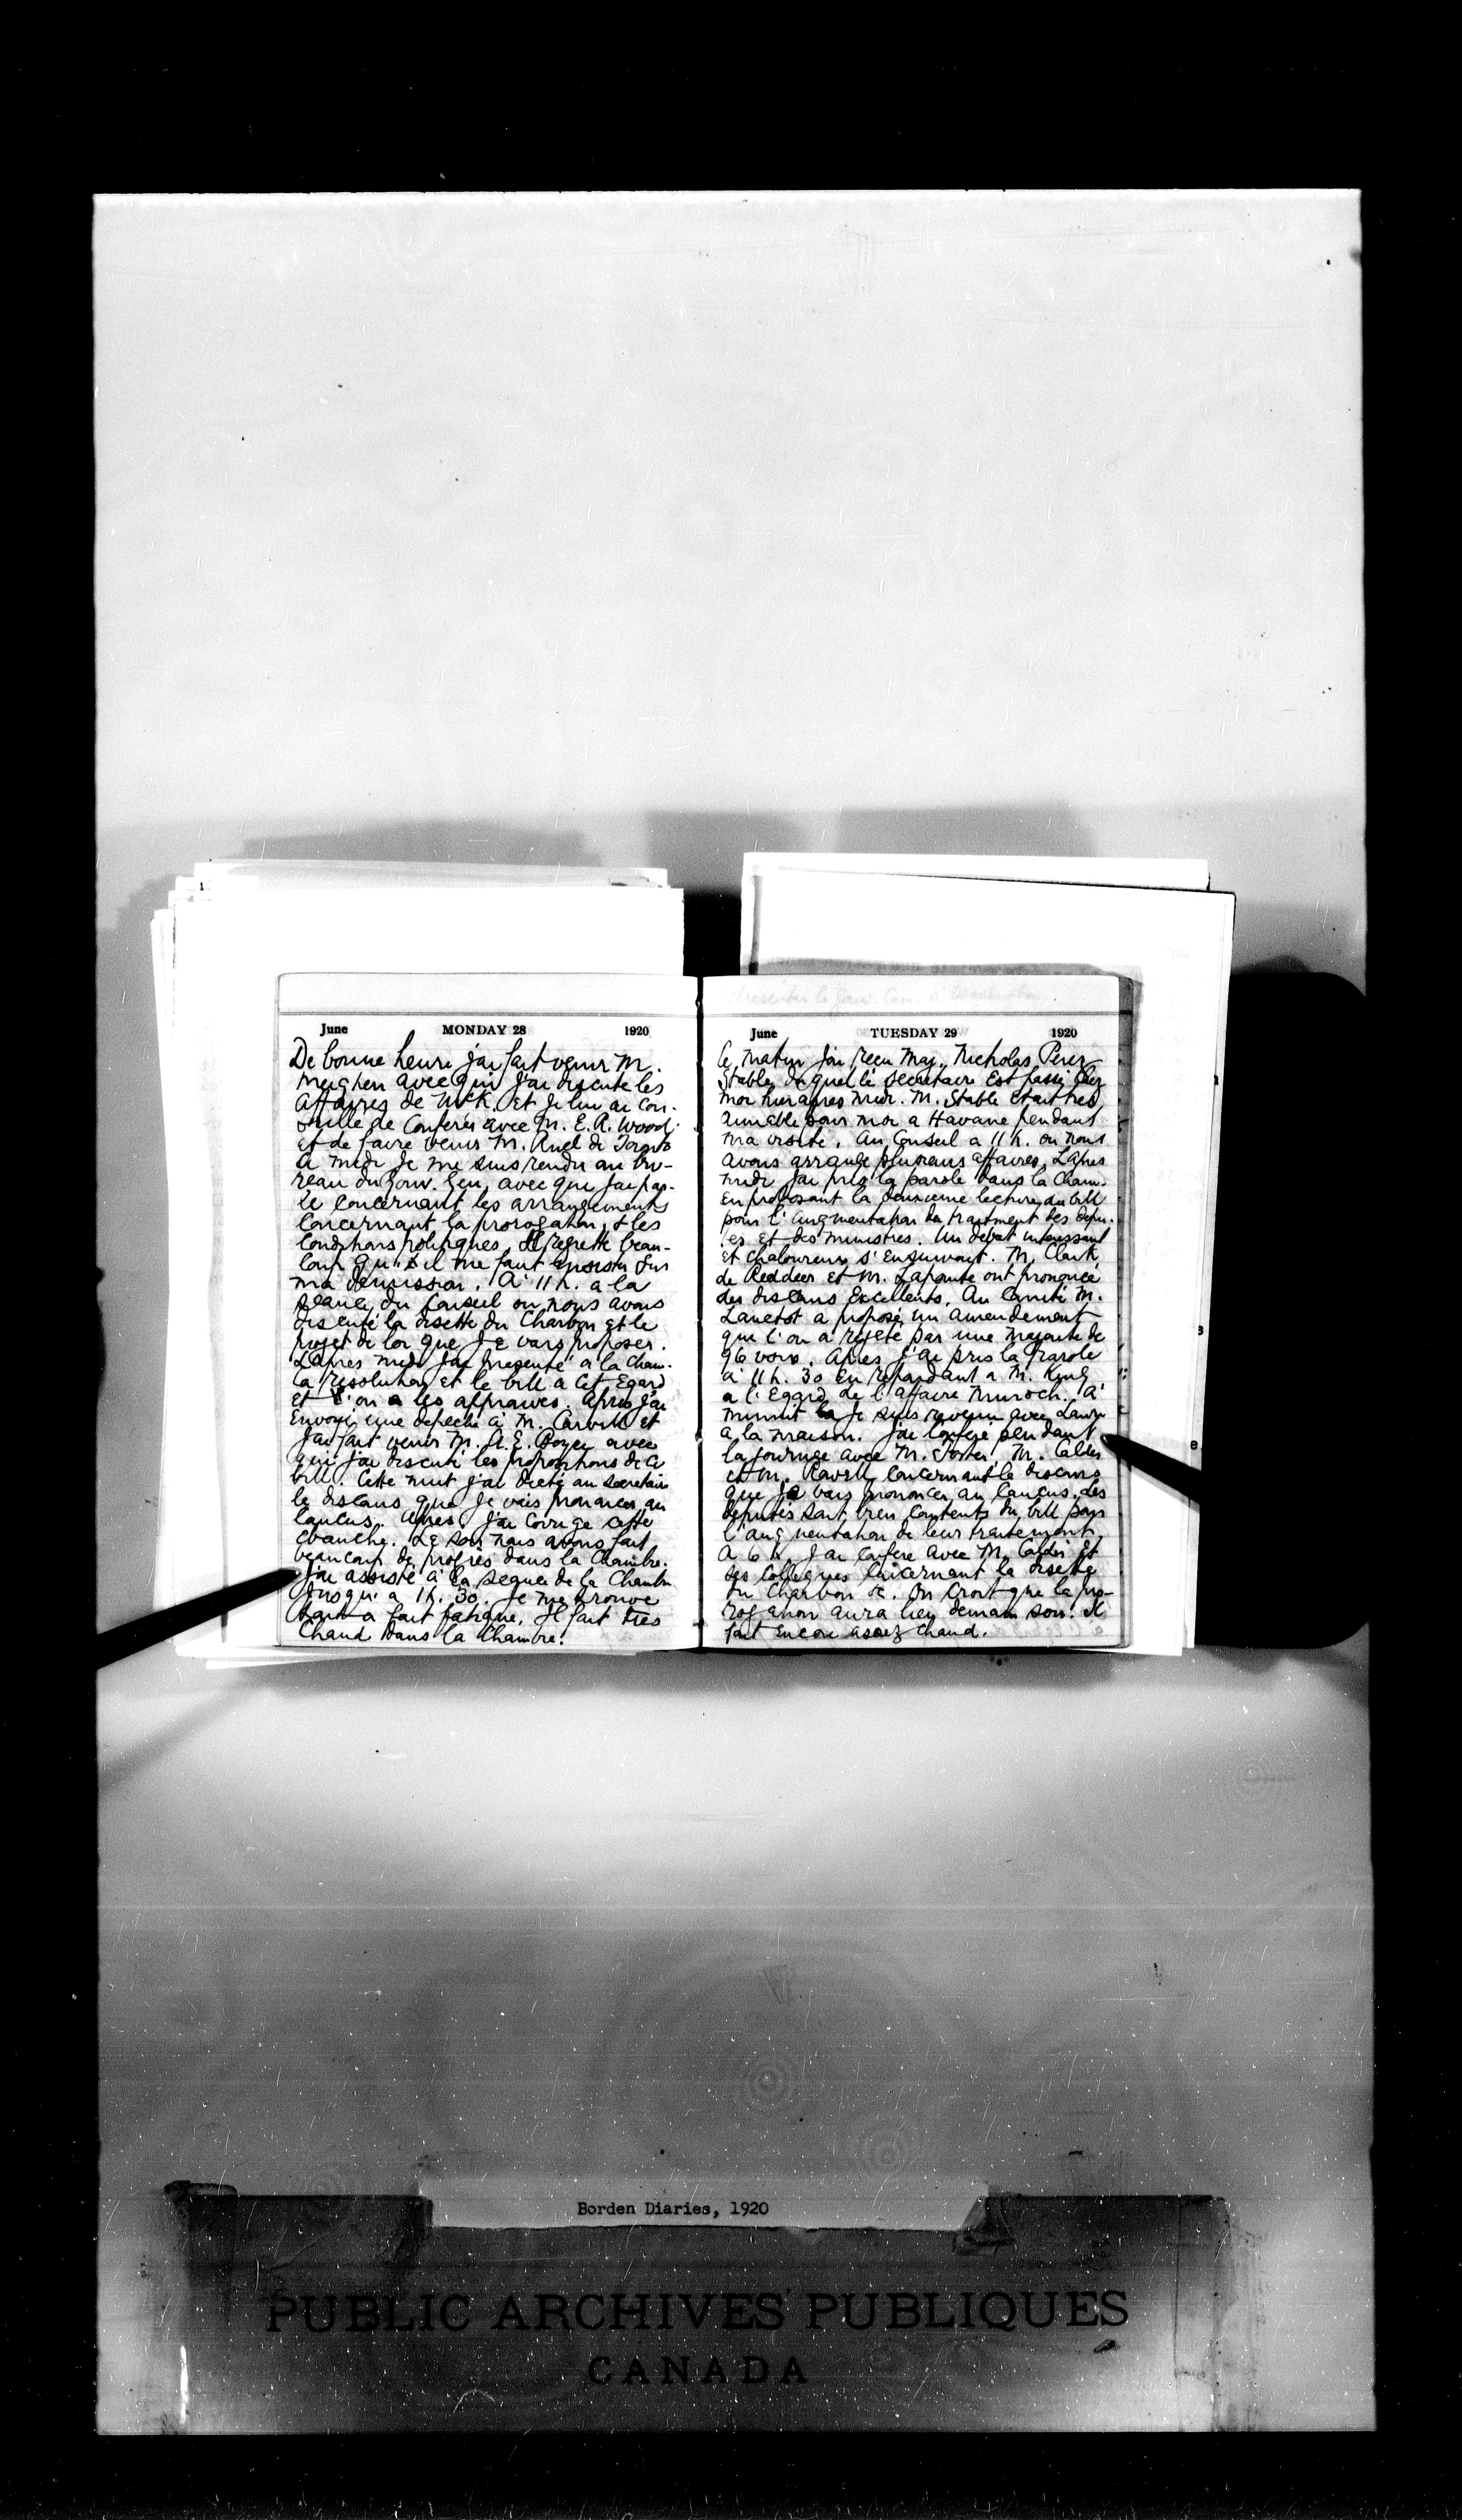 June MONDAY 28 1920
De bonne heure j'ai fait venir M.
Meighen avec qui j'ai discuté les
affaires de McK. et je lui ai con-
seillé de conférer avec M. E. R. Wood
et de faire venir M. Ruel de Toronto
A midi je me suis rendu au bu-
reau du Gouv. Gen. avec qui j'ai par-
le concernant les arrangements
concernant la prorogation, & les
conditions politiques. Il regrette beau-
coup qu'il me faut insister sur
ma démission. A 11 h. a la
séance du Conseil ou nous avons
discuté la disette du Charbon et le
projet de loi que je vais proposer.
L'apres midi j'ai presenté a la Cham.
la resolution et le bill a cet egard
et l'on a les approuvés. Apres j'ai
envoyé une depeche à M. Carvell et
j'ai fait venir M. A. E. Boyce avec
qui j'ai discuté les propositions de ce
bill. Cette nuit j'ai dicté au secretaire
le discours que je vais prononcer au
caucus. Apres j'ai corrigé cette
ebauche. Le soir nous avons fait
beaucoup de progrès dans la Chambre.
J'ai assisté à la seance de la Chambre
jusqu'a 1 h. 30. Je me trouve
tout a fait fatigué. Il fait tres
chaud dans la Chambre.
June TUESDAY 29 1920
Ce matin j'ai recu Maj. Nicholas Perez
Stable duquel le secretaire est passé chez
moi hier apres midi. M. Stable etait tres
aimable pour moi a Havane pendant
ma visite. Au Conseil a 11 h. ou nous
avons arrangé plusieurs affaires. L'apres
midi j'ai pris la parole dans la Cham.
en proposant la deuxieme lecture du bill
pour l'augmentation du traitment des depu-
tes et des ministres. Un debat interessant
et chaloureux s'ensuivait. M. Clark
de Red deer et M. Lapointe ont prononcé
des discours excellents. Au Comité M.
Lanctot a proposé un amendement
que l'on a rejeté par une majorite de
96 voix. Apres j'ai pris la parole
a 11 h. 30 en repondant a M. King
a l'egard de l'affaire Murdoch. A
minuit je suis revenu avec Laura
a la maison. J'ai conferé pendant
la journée avec M. Foster, M. Calder
et M. Rowell concernant le discours
que je vais prononcer au Caucus. Les
deputés sont bien contents du bill pour
l'augmentation de leur traitement.
A 6 h. j'ai conferé avec M. Calder et
ses collegues concernant la disette
du Charbon &c. On croit que la pro-
rogation aura lieu demain soir. Il
fait encore assez chaud.
Borden Diaries, 1920
PUBLIC ARCHIVES PUBLIQUES
CANADA